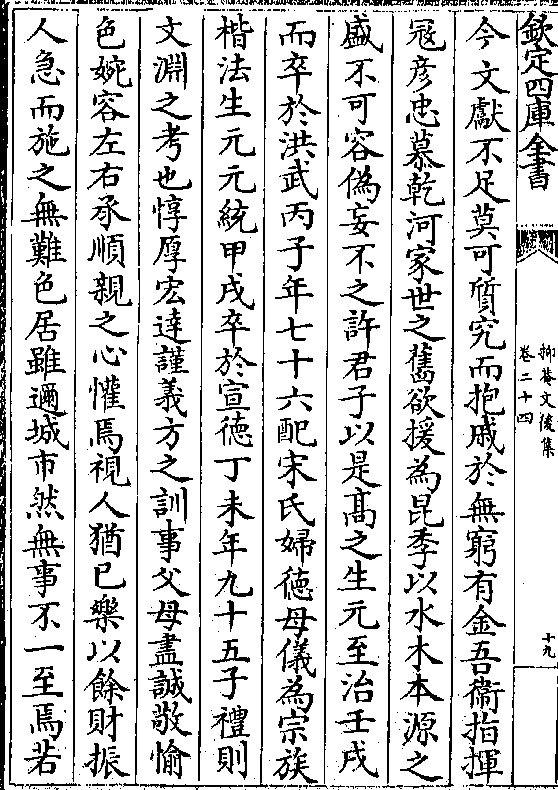 欽定四庫全書
抑菴文後集
卷二十四
十九
今文獻不足莫可質究而抱戚於無窮有金吾衞指揮
冦彦忠慕乾河家世之舊欲援為昆季以水木本源之
盛不可容偽妄不之許君子以是髙之生元至治壬戌
而卒於洪武丙子年七十六配宋氏婦徳母儀為宗族
楷法生元元統甲戌卒於宣徳丁未年九十五子禮則
文淵之考也惇厚宏達謹義方之訓事父母盡誠敬愉
色婉容左右承順親之心懽焉視人猶已樂以餘財振
人急而施之無難色居雖邇城市然無事不一至焉若